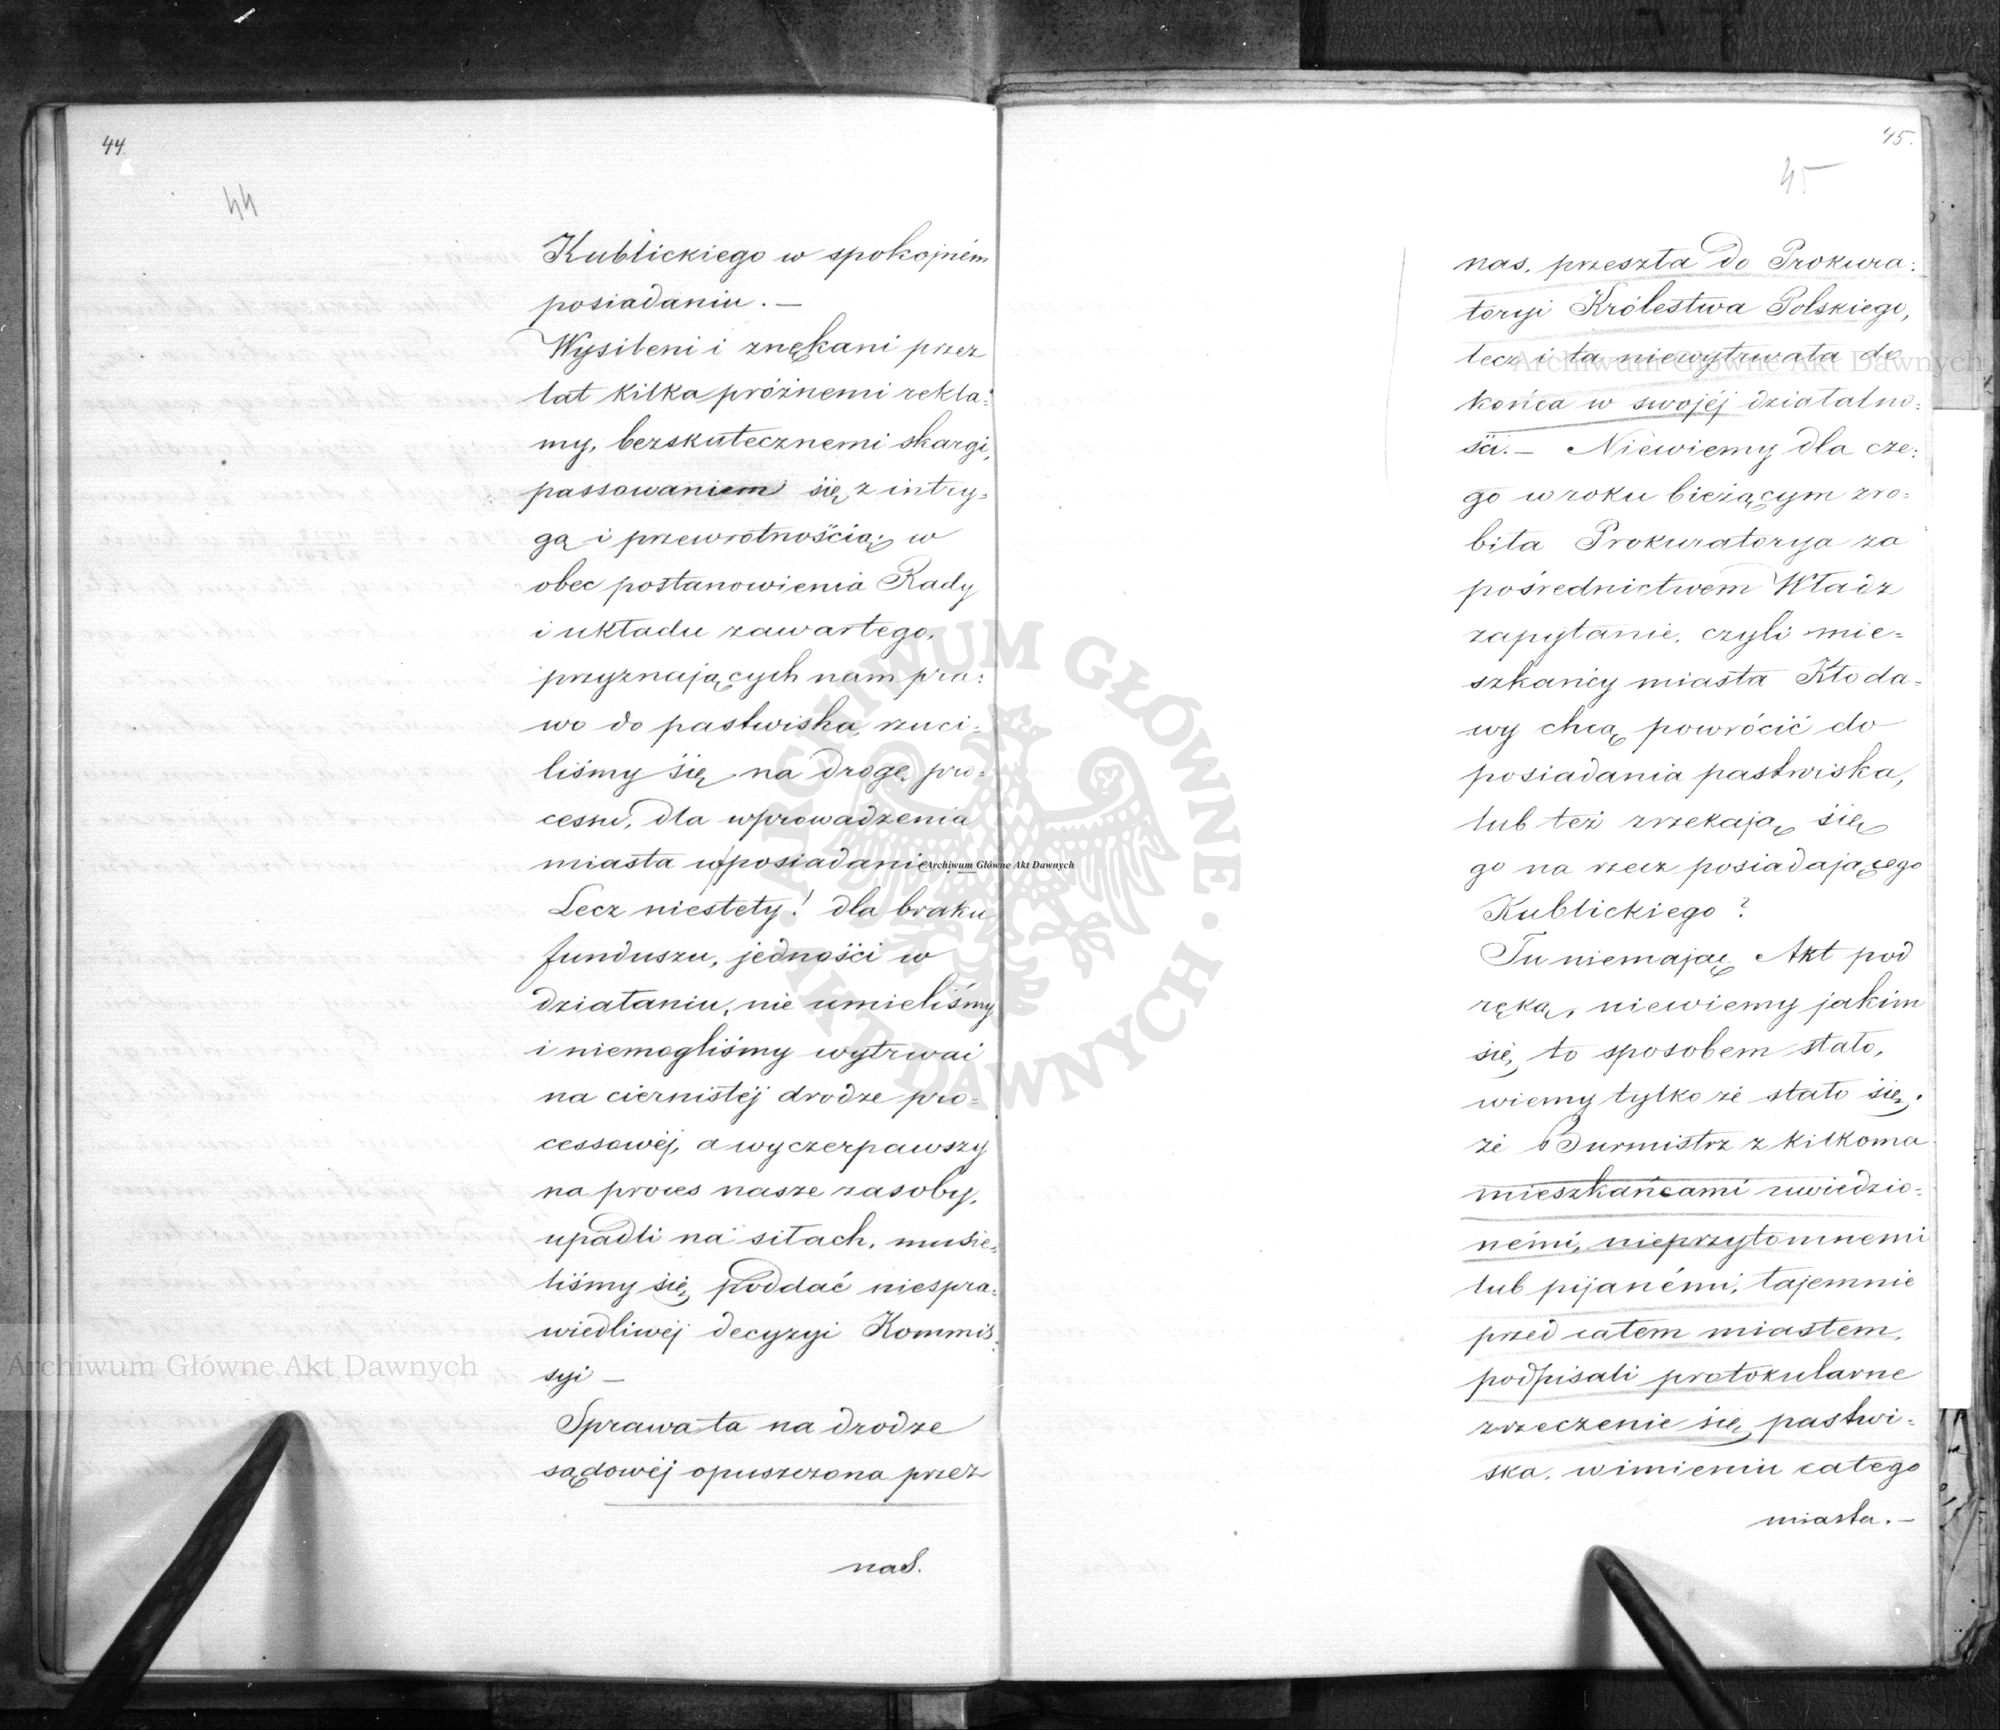 44.
44
Kublickiego w spokojném
posiadaniu. —
Wysileni i znękani przez
lat kilka próżnemi rekla:
my, bezskutecznemi skargi,
passowaniem się z intry=
gą i przewrotnością; w
obec postanowienia Rady
i układu zawartego,
przyznających nam pra:
wo do pastwiska, rzuci:
liśmy się na drogę pro=
cessu, dla wprowadzenia
miasta w posiadanie. —
Lecz niestety! dla braku
funduszu, jedności w
działaniu, nie umieliśmy
i niemogliśmy wytrwać
na ciernistéj drodze pro=
cessowéj, a wyczerpawszy
na proces nasze zasoby,
upadli na siłach, musie=
liśmy się poddać niespra=
wiedliwéj decyzyi Kommis=
syi —
Sprawa ta na drodze
sądowéj opuszczona przez
nas.
45.
45
nas, przeszła do Prokura:
toryi Królestwa Polskiego,
lecz i ta niewytrwała do
końca w swojéj działalno=
ści. — Niewiemy dla cze:
go w roku bieżącym zro=
biła Prokuratorya za
pośrednictwem Władz
zapytanie, czyli mie=
szkańcy miasta Kłoda=
wy chcą powrócić do
posiadania pastwiska,
lub też zrzekają się
go na rzecz posiadającego
Kublickiego?
Tu niemając Akt pod
ręką, niewiemy jakim
się to sposobem stało,
wiemy tylko że stało się,
że Burmistrz z kilkoma
mieszkańcami uwiedzio=
nemi, nieprzytomnemi
lub pijanémi, tajemnie
przed całem miastem,
podpisali protokularne
zrzeczenie się pastwi=
ska, w imieniu całego
miasta. —
Archiwum Główne Akt Dawnych
Archiwum Główne Akt Dawnych
Archiwum Główne Akt Dawnych
ARCHIWUM GŁÓWNE · AKT DAWNYCH ·